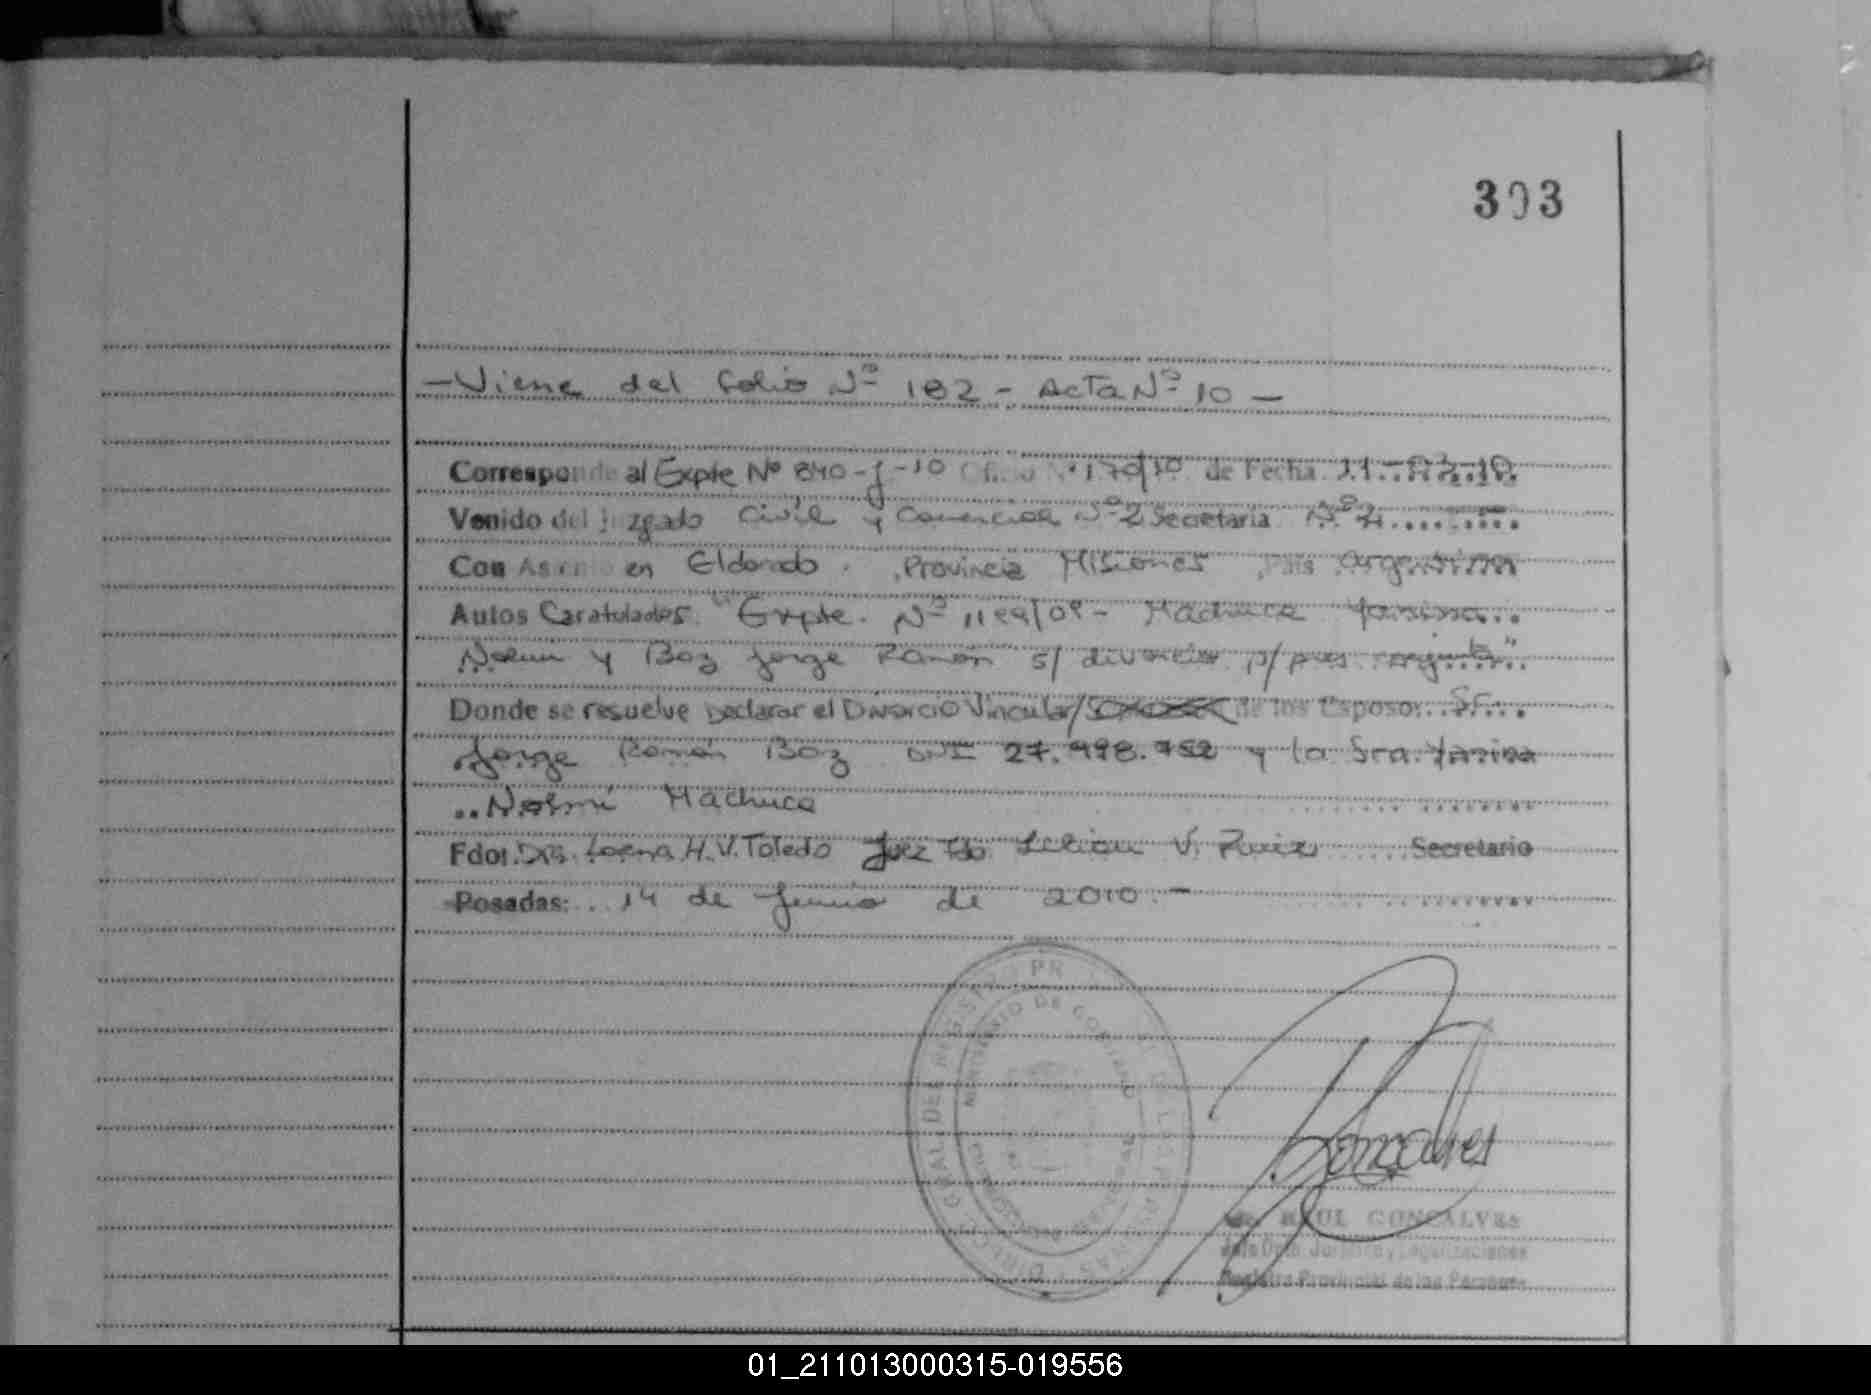 303
- Viene del folio Nº 182 - Acta Nº 10 -
Corresponde al Expte Nº 840-J-10 Oficio Nº 170/10 de Fecha
Venido del Juzgado Civil y Comercial Nº 2 Secretaria Nº
Con Asiento en Eldorado, Provincia Misiones, País Argentina
Autos Caratulados: "Expte. Nº Machuca Yanina
y Boz Jorge Ramón s/ divorcio p/ pres. conjunta"
Donde se resuelve Declarar el Divorcio Vincular/ de los Esposos: Sr.
Jorge Ramón Boz DNI 27.998.752 y la Sra. Yanina
Noemí Machuca
Fdo: Dra. Lorena H. V. Toledo Juez Fdo. Lilian V. Ruiz Secretario
Posadas: 14 de Junio de 2010.-
DIRECC. GRAL. DEL REGISTRO PROVINCIAL DE LAS PERSONAS
MINISTERIO DE GOBIERNO
Goncalves
RAUL GONCALVES
Jefe Dpto. Jurídico y Legalizaciones
Registro Provincial de las Personas
01_211013000315-019556